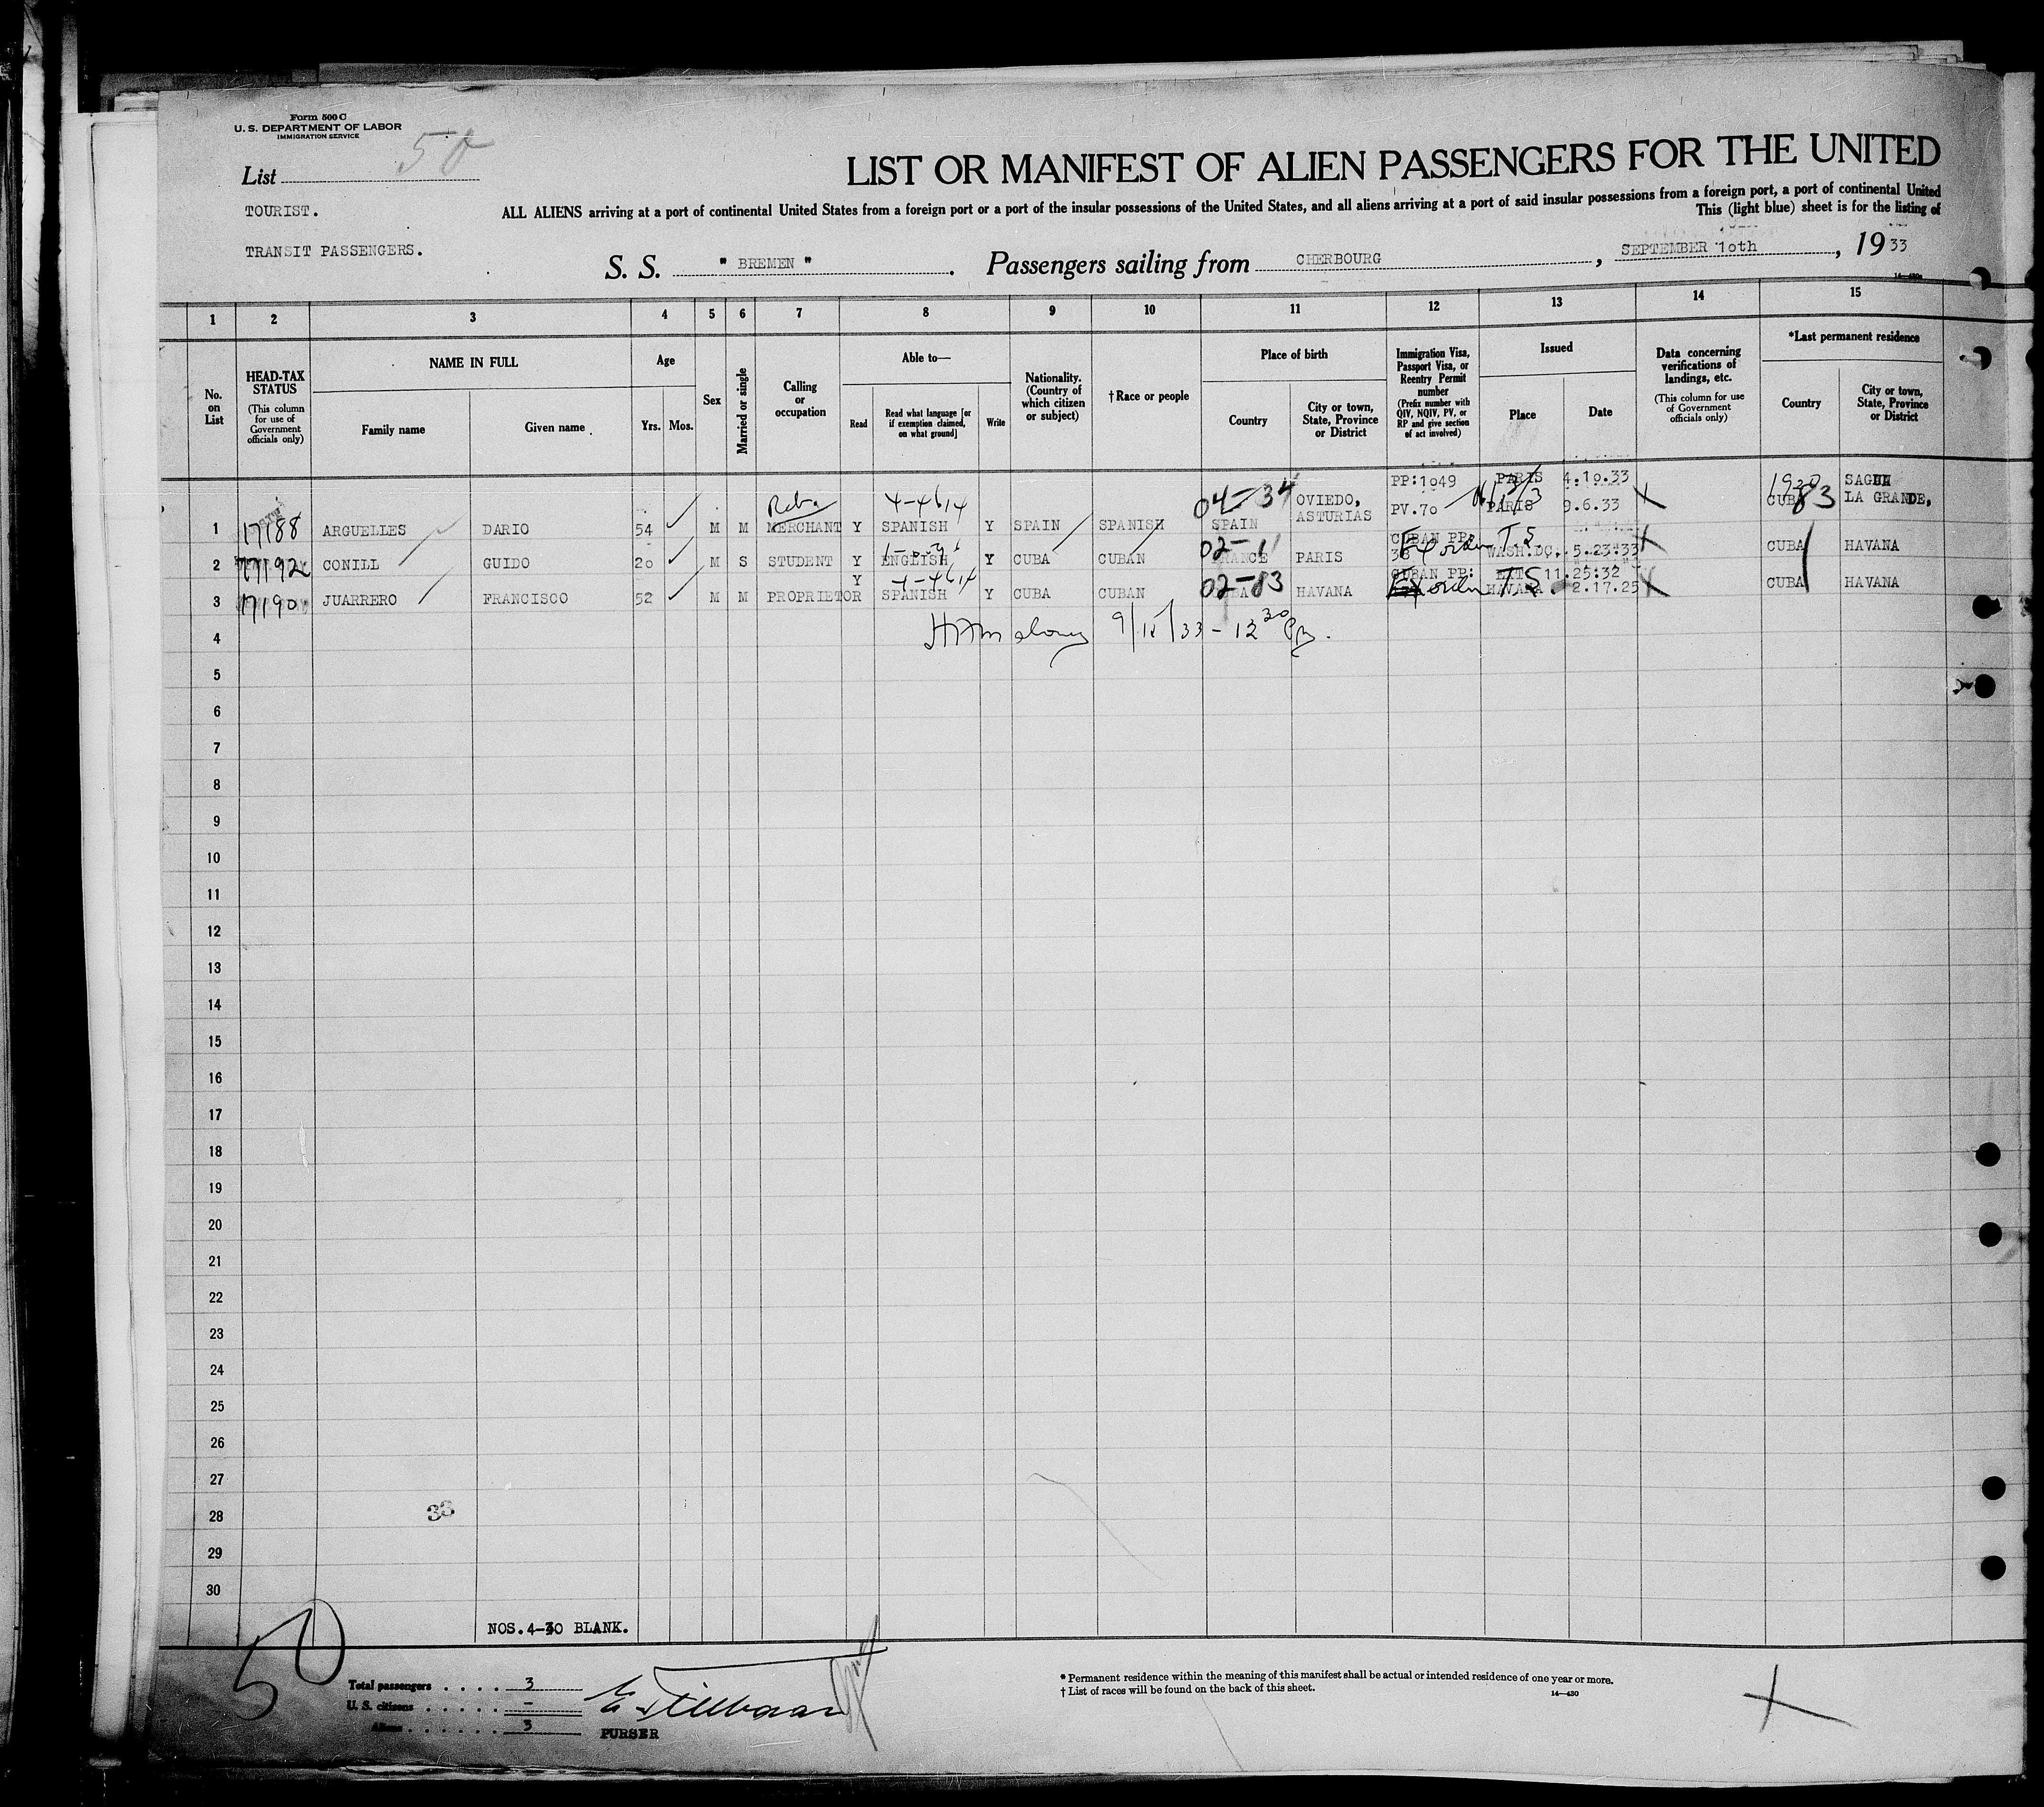 Form 500 C
U. S. DEPARTMENT OF LABOR
IMMIGRATION SERVICE
List 50
TOURIST.
TRANSIT PASSENGERS.
LIST OR MANIFEST OF ALIEN PASSENGERS FOR THE UNITED
ALL ALIENS arriving at a port of continental United States from a foreign port or a port of the insular possessions of the United States, and all aliens arriving at a port of said insular possessions from a foreign port, a port of continental United
This (light blue) sheet is for the listing of
S. S. " BREMEN " . Passengers sailing from CHERBOURG , SEPTEMBER 10th , 19 33
14—430a
1 2 3 4 5 6 7 8 9 10 11 12 13 14 15
No. on List
HEAD-TAX STATUS
(This column for use of Government officials only)
NAME IN FULL
Family name
Given name
Age
Yrs. Mos.
Sex
Married or single
Calling or occupation
Able to—
Read
Read what language [or if exemption claimed, on what ground]
Write
Nationality. (Country of which citizen or subject)
†Race or people
Place of birth
Country
City or town, State, Province or District
Immigration Visa, Passport Visa, or Reentry Permit number
(Prefix number with QIV, NQIV, PV, or RP and give section of act involved)
Issued
Place
Date
Data concerning verifications of landings, etc.
(This column for use of Government officials only)
*Last permanent residence
Country
City or town, State, Province or District
PP:1049 PARIS 4.10.33 1920 SAGUA
4-4614 04-34 OVIEDO, ASTURIAS PV.70 PARIS 9.6.33 X CUBA 83 LA GRANDE,
1 17188 ARGUELLES DARIO 54 M M MERCHANT Y SPANISH Y SPAIN SPANISH SPAIN
02-11 CUBAN PP:
2 17192 CONILL GUIDO 20 M S STUDENT Y ENGLISH Y CUBA CUBAN FRANCE PARIS 38 T.S. WASH.DC. 5.23.33 X CUBA HAVANA
Y 4-4614 02-83 CUBAN PP: 11.25:32
3 17190 JUARRERO FRANCISCO 52 M M PROPRIETOR SPANISH Y CUBA CUBAN CUBA HAVANA T.S. HAVANA. 2.17.25 X CUBA HAVANA
4 9/15/33 - 12 30
5
6
7
8
9
10
11
12
13
14
15
16
17
18
19
20
21
22
23
24
25
26
27
28 33
29
30
NOS.4-30 BLANK.
50
Total passengers . . . . . 3
U. S. citizens . . . . . . -
Aliens . . . . . . 3
PURSER
* Permanent residence within the meaning of this manifest shall be actual or intended residence of one year or more.
† List of races will be found on the back of this sheet.
14—430
X